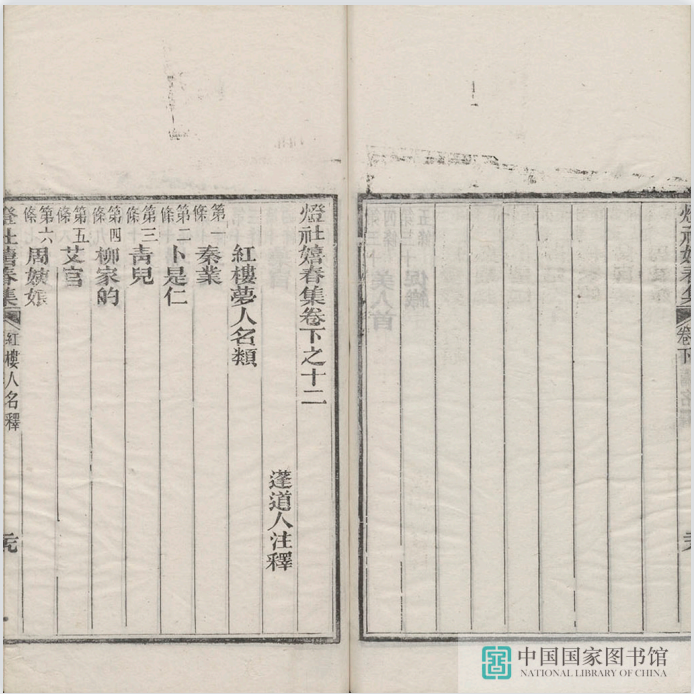 燈社嬉春集
卷下
燈社嬉春集卷下之十二
蓬道人注釋
紅樓夢人名類
第一條
秦業
第二條
卜是仁
第三條
青兒
第四條
柳家的
第五條
艾官
第六條
周姨娘
燈社嬉春集
紅樓人名釋
中国国家图书馆
NATIONAL LIBRARY OF CHINA